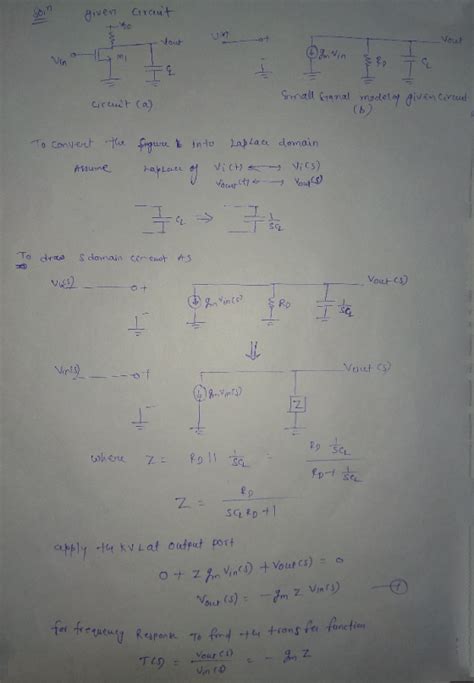 Soln given circuit
Vout
Vin
M1
CL
Vin
gm Vin
RD
CL
Vout
circuit (a)
Small signal model of given circuit
(b)
To convert the figure b into Laplace domain
Assume Laplace of Vi(t) ⟷ Vi(s)
Vout(t) ⟷ Vout(s)
CL ⇒ 1/SCL
To draw S domain circuit As
Vin(s) + gm Vin(s) RD 1/SCL Vout (s)
⇓
Vin(s) + gm Vin(s) Z Vout (s)
where Z = RD || 1/SCL = RD 1/SCL / RD + 1/SCL
Z = RD / SCL RD + 1
apply the KVL at output port
0 + Z gm Vin(s) + Vout(s) = 0
Vout(s) = - gm Z Vin(s) — 1
for frequency Response To find the transfer function
T(s) = Vout(s) / Vin(s) = - gm Z